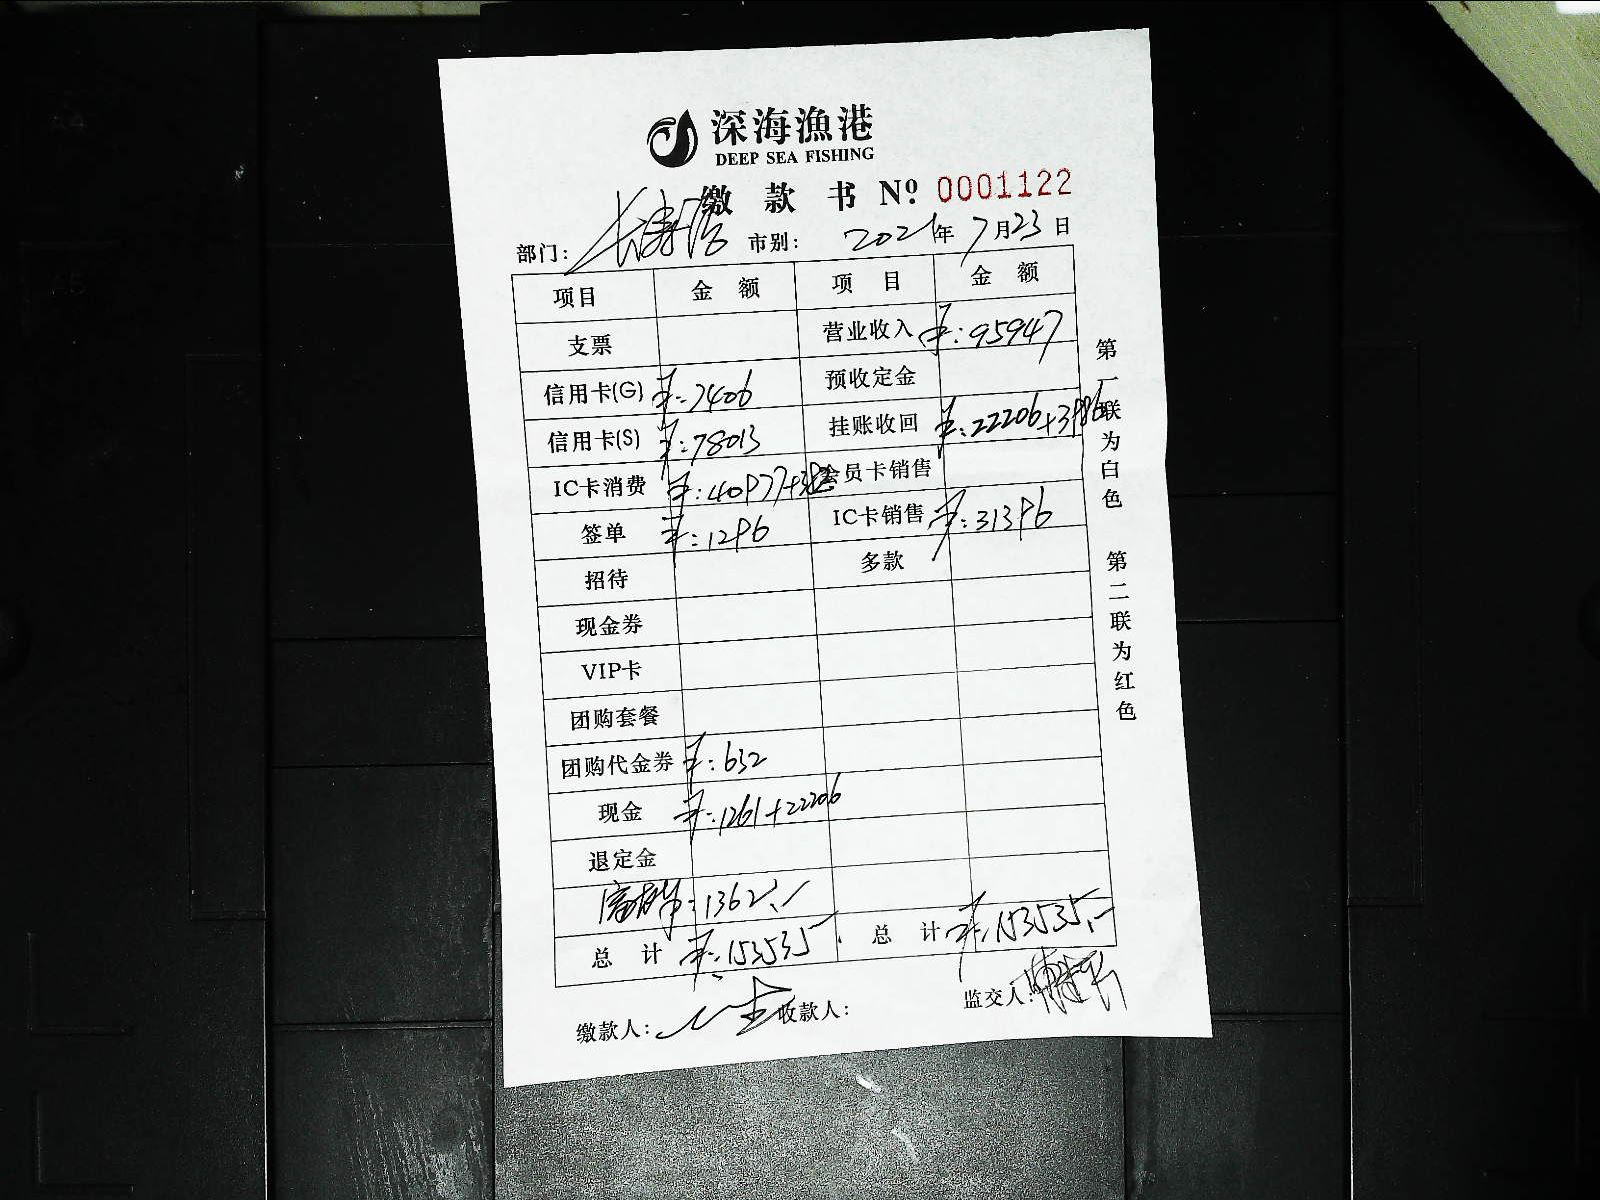 深海漁港
DEEP SEA FISHING
缴款书 Nº: 0001122
部门: 市别: 2021年7月23日
项目 金额 项目 金额
支票 营业收入 ¥:95947
信用卡(G) ¥:7406 预收定金
信用卡(S) ¥:78013 挂账收回 ¥:22206+3986
IC卡消费 ¥:40977+382 会员卡销售
签单 ¥:1296 IC卡销售 ¥:31396
招待 多款
现金券
VIP卡
团购套餐
团购代金券 ¥:632
现金 ¥:1261+22206
退定金
1362.-
总计 ¥:153535 总计 ¥:153535.-
缴款人: 收款人: 监交人:
第一联为白色 第二联为红色